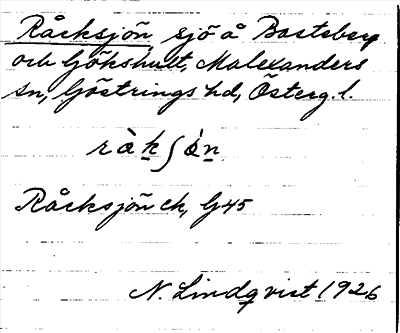 Råcksjön, sjö å Bastsberg
och Gökshult, Malexanders
sn, Göstrings hd, Österg. l.
råkʃön
Råcksjön ek, G45
N. Lindqvist 1926